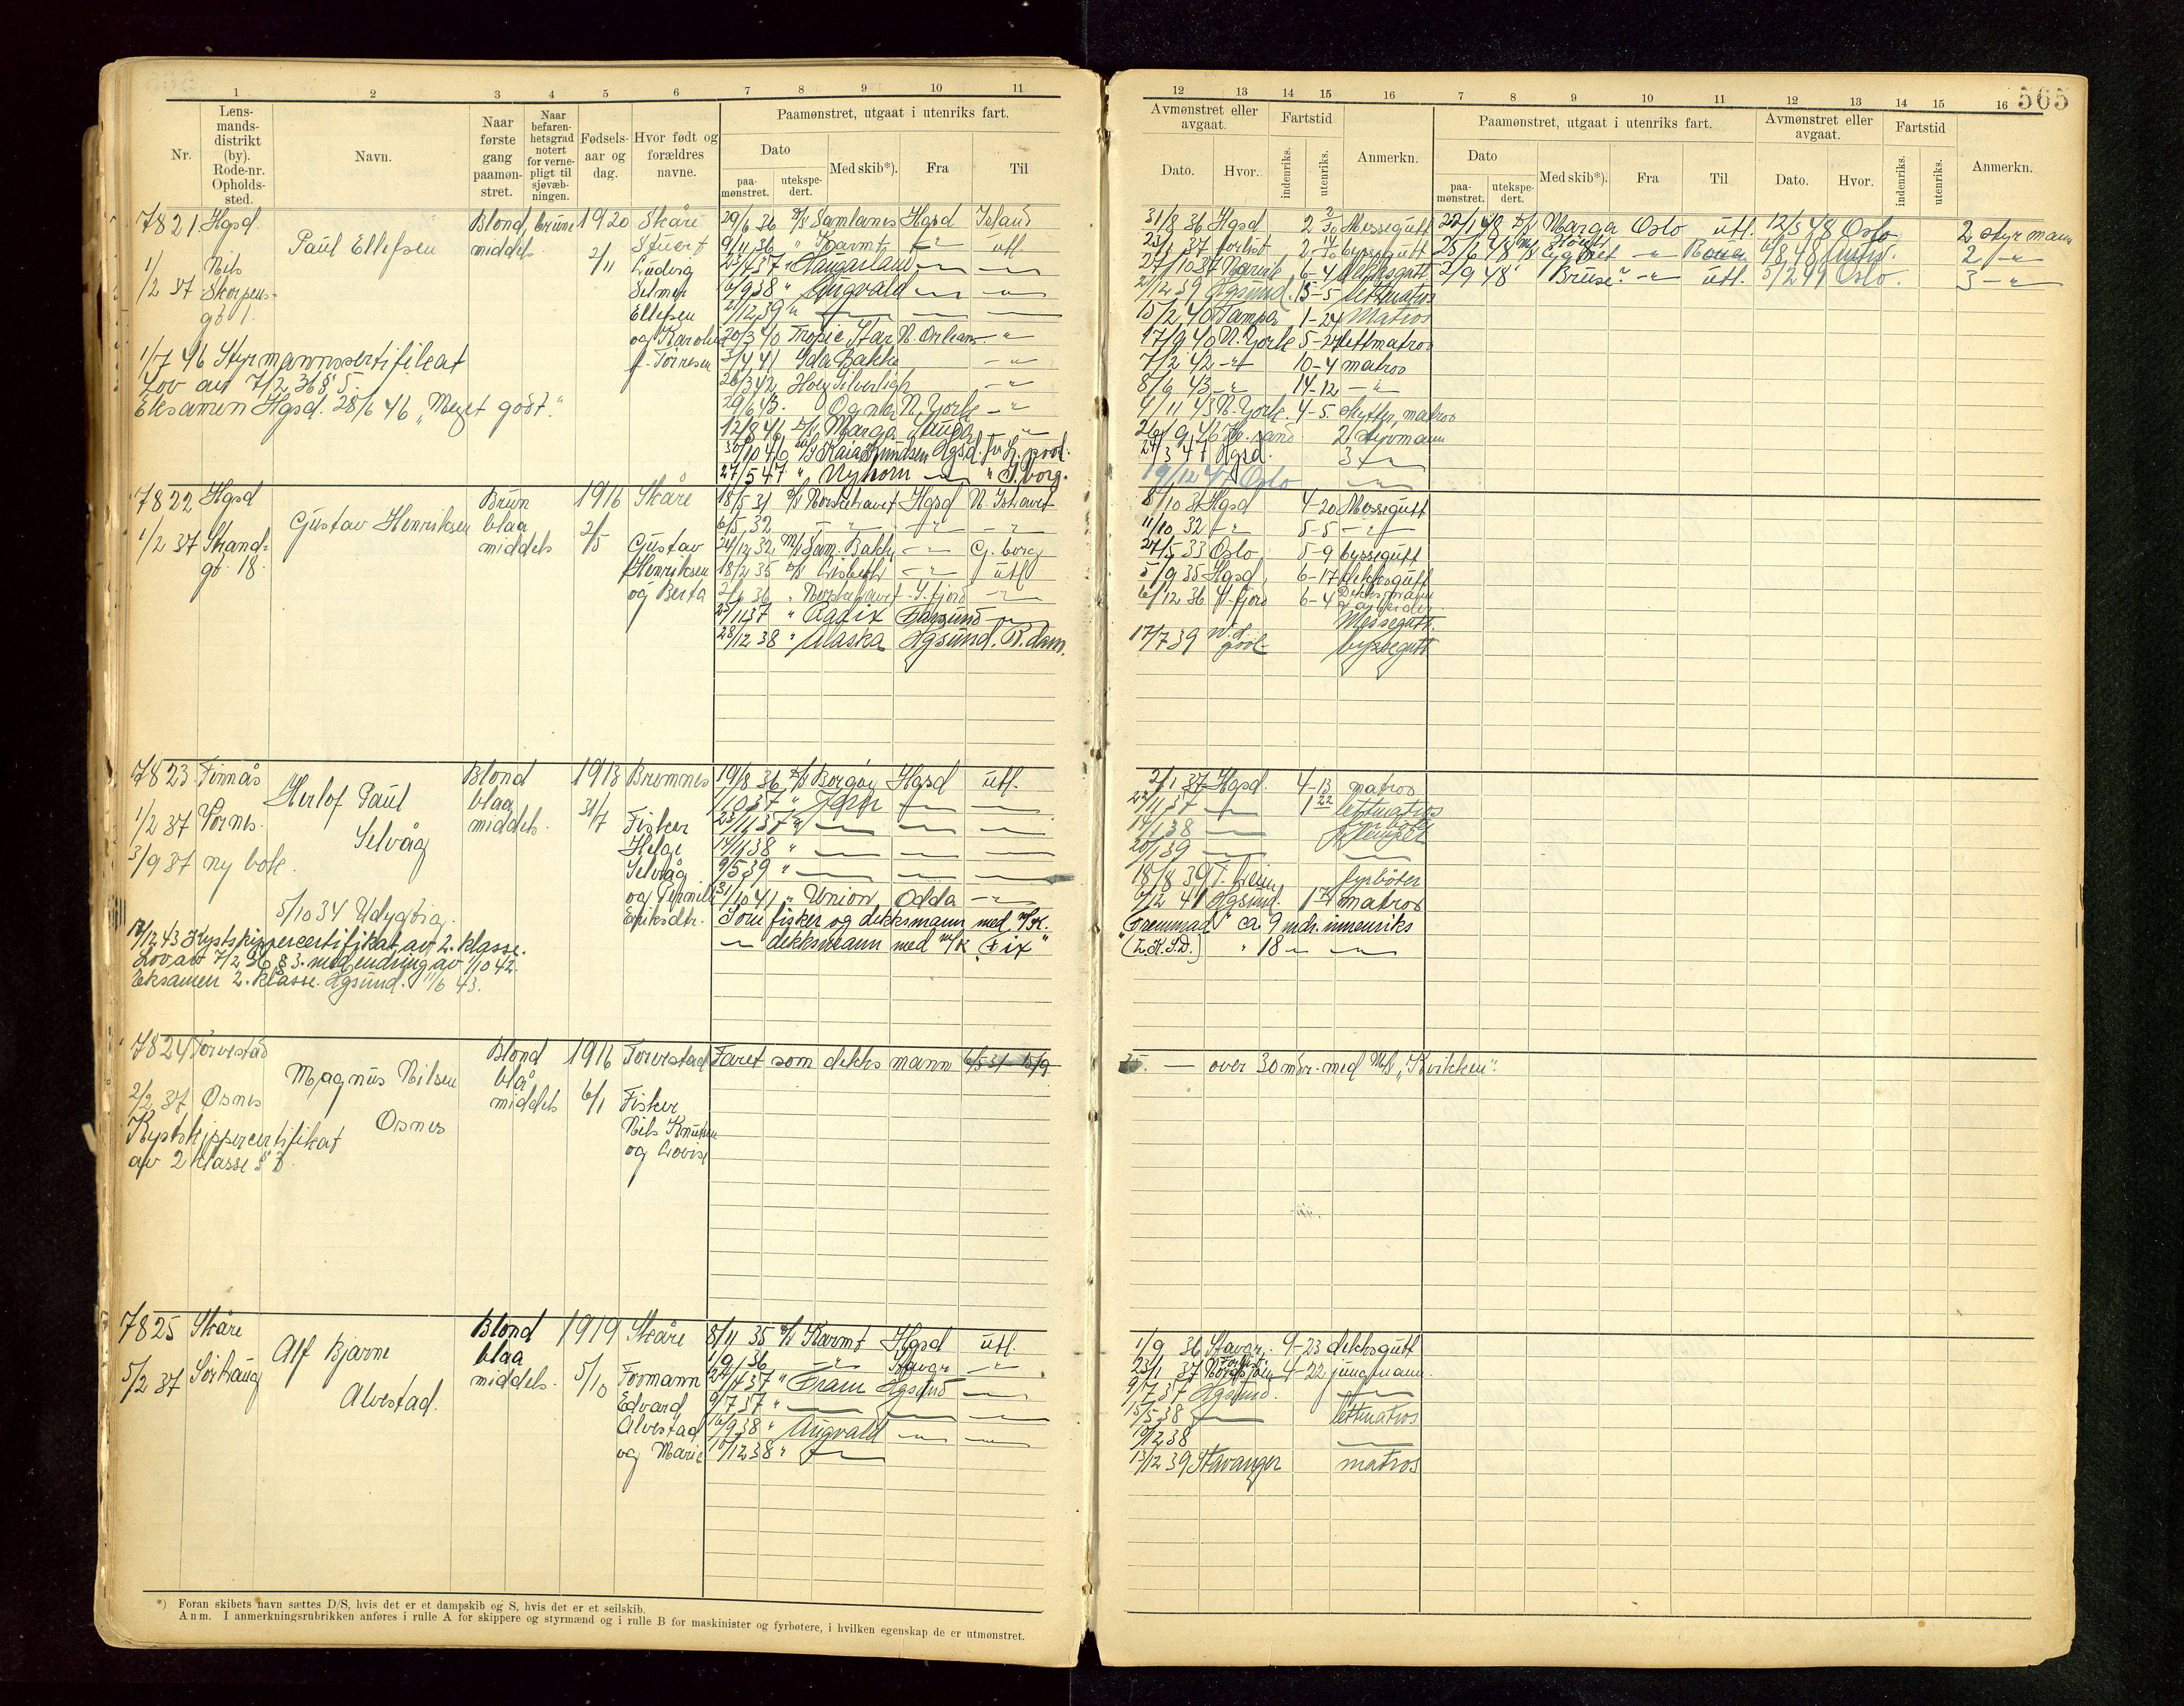 565
1 2 3 4 5 6 7 8 9 10 11
Nr.
Lens-
mands-
distrikt
(by).
Rode-nr.
Opholds-
sted.
Navn.
Naar
første
gang
paamøn-
stret.
Naar
befaren-
hetsgrad
notert
for verne-
pligt til
sjøvæb-
ningen.
Fødsels-
aar og
dag.
Hvor født og
forældres
navne.
Paamønstret, utgaat i utenriks fart.
Dato
paa-
mønstret.
utekspe-
dert.
Med skib*).
Fra
Til
12 13 14 15 16 7 8 9 10 11 12 13 14 15 16
Avmønstret eller
avgaat.
Dato.
Hvor.
Fartstid
indenriks.
utenriks.
Anmerkn.
Paamønstret, utgaat i utenriks fart.
Dato
paa-
mønstret.
utekspe-
dert.
Med skib*).
Fra
Til
Avmønstret eller
avgaat.
Dato.
Hvor.
Fartstid
indenriks.
utenriks.
Anmerkn.
7821 Hgsd.
Paul Ellefsen
Blond, brune
middels
1920
2/11
Skåre
Stuert
Ludvig
Selmer
Ellefsen
og Karoline
f. Tørresen
1/2 37
Nils
Skorpens-
gt 1.
1/7 46 Styrmannssertifikat
Lov av 7/2 36 § 5.
Eksamen Hgsd. 28/6 46 "Meget godt."
29/6 36 D/S Samlanes Hgsd Island
9/11 36 " Karmt -"- utl.
" Haugarland -"- -"-
6/9 38 " Augvald -"- -"-
2/12 39 "
20/3 40 Tropic Star N. Orleans -"-
3/4 41 Ida Bakke -"-
26/3 42 Høegh Silverligh -"-
29/6 43. Ogna N. York -"-
12/8 46 D/S Marga Sauda -"-
30/10 46 M/S Kaia Knudsen Hgsd. L.pool.
27/5 47 " Nyhorn -"- " G.borg.
31/8 36 Hgsd 2 Messegutt
23/1 37 forlist byssegutt
27/10 37 Narvik 6-4 dekksgutt
2/12 39 Hgsund. 15-5 lettmatros
15/2 40 Tampa 1-24 Matros
17/9 40 N. York 5-27 lettmatros
7/2 42 -"- 10-4 matros
8/6 43 -"- 14-12 -"-
4/11 45 N. York. 4-5. skytter, matros
26/9 46 Kr.sand 2 styrmann
24/3 47 Hgsd. 3 -"-
19/12 47 Oslo -"-
22/1 48 D/S Marga Oslo utl. 12/3 48 Oslo 2 styrmann
25/6 48 -"- Rouen 2 -"-
2/9 48 " Bruse" -"- utl. 5/2 49 Oslo. 3 -"-
7822 Hgsd
Gustav Henriksen
Brun
blaa
middels
1916
2/5
Skåre
Gustav
Henriksen
og Berta
1/2 37 Strand-
gt. 18.
18/5 31 D/S Norskehavet Hgsd N. Ishavet
6/5 32 -"- -"- -"-
24/12 32 M/S Sam. Bakke -"- G. borg
18/2 35 D/S Lisbeth -"- utl
2/6 36 " Norskehavet S. fjord -"-
25/11 37 " Ragix Farsund -"-
28/12 38 " Alaska Hgsund. R.dam.
8/10 31 Hgsd 4-20 Messegutt
11/10 32 -"- 5-5 -"-
27/5 33 Oslo 5-9 byssegutt
5/9 35 Hgsd 6-17 dekksgutt
6/12 36 S. fjord 6-4 Dekksmann
& arbeider.
Messegutt.
17/7 39 byssegutt
7823 Finnås
Herlof Paul
Selvåg
Blond
blaa
middels.
1913
31/7
Bremnes
Fisker
Helge
Selvåg
og Pernille
Eriksdtr.
1/2 37 Vornes.
3/9 37 ny bok.
5/10 34 Udygtig.
17/12 43 Kystskippercertifikat av 2. klasse.
Lov av 7/2 36 § 3. med endring av 1/10 42.
Eksamen 2. klasse. Hgsund. 11/6 43.
19/8 36 D/S Borgøy Hgsd utl.
1/10 37 "
23/11 37 " -"- -"- -"-
17/1 38 " -"- -"- -"-
9/5 39 " -"- -"- -"-
31/10 41 " Union Odda -"-
Som fisker og dekksmann med M/K.
-"- dekksmann med M/K "Fix"
2/1 37 Hgsd. 4-13 matros
22/11 37 -"- lettmatros
17/1 38 -"- fyrbøter
20/1 39 -"- -"-
18/8 39 T.heim fyrbøter
9/12 41 Hgsund. matros
"Fremmad" ca 9 mdr. innenriks
(L.K.S.D.) " 18 -"- -"-
7824 Torvestad
Magnus Nilsen
Osnes
Blond
blå
middels
1916
6/1
Torvestad
Fisker
Nils Knutsen
og Lovise
2/2 37 Osnes
Kystskippercertifikat
av 2 klasse § 3.
Faret som dekksmann 6/5 31 - 15/9
35. — over 30 mdr. med M/S "Kvikken".
7825 Skåre
Alf Bjarne
Alvestad.
Blond
blaa
middels.
1919
5/10
Skåre
Formann
Edvard
Alvestad
og Marie
5/2 37 Sørhaug
8/11 35 D/S Karmt Hgsd utl.
1/9 36 -"- Stavgr -"-
24/4 37 " Fram Hgsund -"-
9/7 37 " -"- -"- -"-
16/9 38 " Augvald -"- -"-
10/12 38 " -"-
1/9 36 Stavgr. 9-23 dekksgutt
23/1 37 forlist Nordsjøen 4-22 jungmann.
9/7 37 Hgsund. -"-
15/5 38 -"- lettmatros
10/12 38 -"-
13/12 39 Stavanger matros
*) Foran skibets navn sættes D/S, hvis det er et dampskib og S, hvis det er et seilskib.
Anm. I anmerkningsrubrikken anføres i rulle A for skippere og styrmænd og i rulle B for maskinister og fyrbøtere, i hvilken egenskap de er utmønstret.